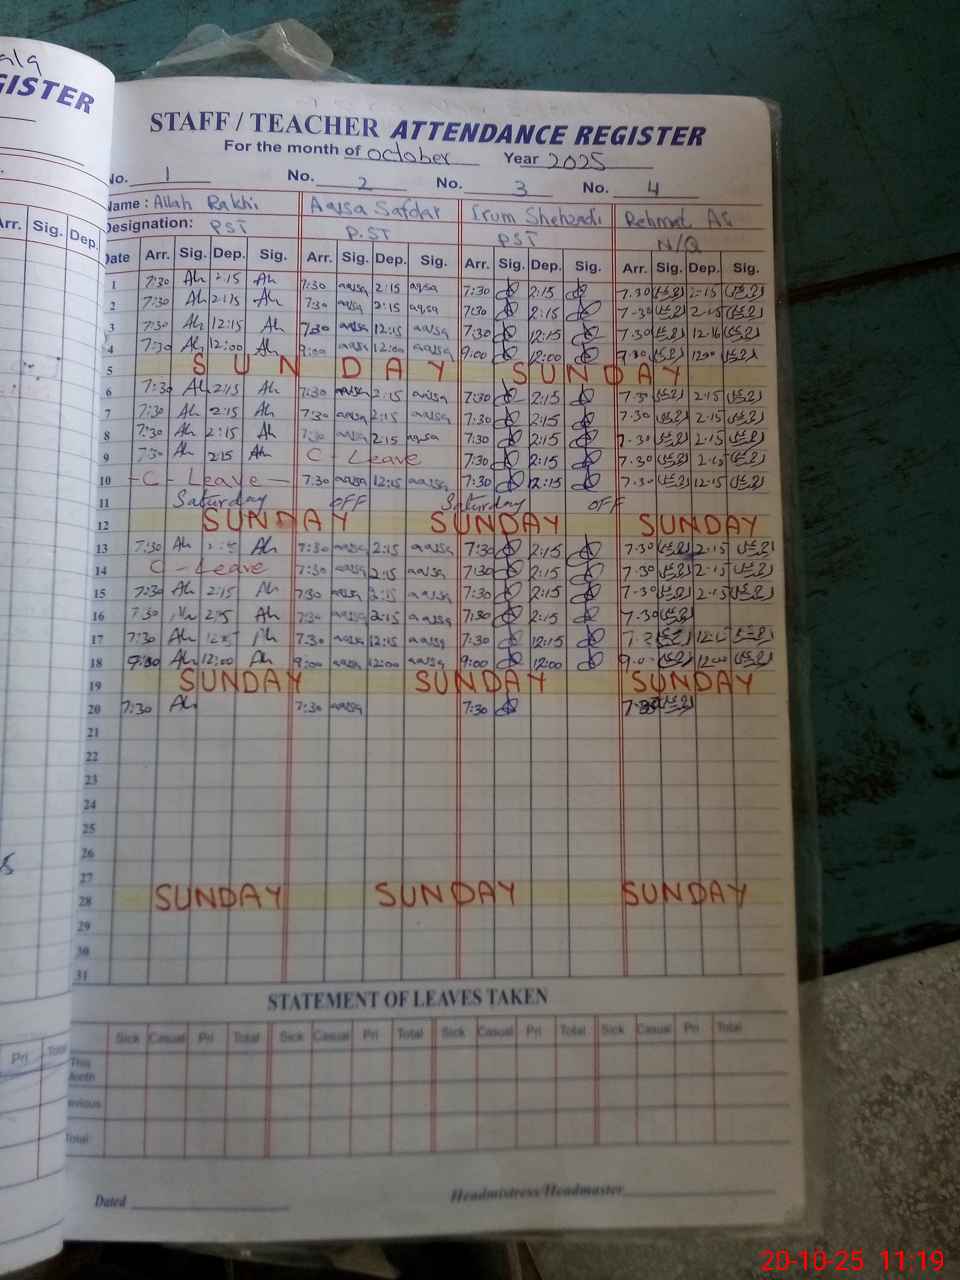 GISTER
STAFF / TEACHER ATTENDANCE REGISTER
For the month of october Year 2025
No. 1 No. 2 No. 3 No. 4
Name: Allah Rakhi Aqsa Safdar Irum Shehzadi Rehmat Ali
Designation: PST P.ST PST N/Q
Arr. Sig. Dep. Date Arr. Sig. Dep. Sig. Arr. Sig. Dep. Sig. Arr. Sig. Dep. Sig. Arr. Sig. Dep. Sig.
1 7:30 Ah 2:15 Ah 7:30 aqsa 2:15 aqsa 7:30 2:15 7.30 2.15
2 7:30 Ah 2:15 Ah 7:30 aqsa 2:15 aqsa 7:30 2:15 7.30 2.15
3 7:30 Ah 12:15 Ah 7:30 aqsa 12:15 aqsa 7:30 12:15 7.30
4 7:30 Ah 12:00 Ah 9:00 aqsa 12:00 aqsa 9:00 12:00 7.30
5 SUNDAY SUNDAY
6 7:30 Ah 2:15 Ah 7:30 aqsa 2:15 aqsa 7:30 2:15 7.30 2.15
7 7:30 Ah 2:15 Ah 7:30 aqsa 2:15 aqsa 7:30 2:15 7.30 2.15
8 7:30 Ah 2:15 Ah 7:30 aqsa 2:15 aqsa 7:30 2:15 7.30 2.15
9 7:30 Ah 2:15 Ah C - Leave 7:30 2:15 7.30 2.15
10 - C - Leave - 7:30 aqsa 12:15 aqsa 7:30 12:15 7.30 12.15
11 Saturday OFF Saturday OFF
12 SUNDAY SUNDAY SUNDAY
13 7:30 Ah 2:15 Ah 7:30 aqsa 2:15 aqsa 7:30 2:15 7.30 2.15
14 C - Leave 7:30 aqsa 2:15 aqsa 7:30 2:15 7.30 2.15
15 7:30 Ah 2:15 Ah 7:30 aqsa 2:15 aqsa 7:30 2:15 7.30 2.15
16 7:30 Ah 2:15 Ah 7:30 aqsa 2:15 aqsa 7:30 2:15 7.30
17 7:30 Ah Ah 7:30 aqsa 12:15 aqsa 7:30 12:15
18 9:00 Ah 12:00 Ah 9:00 aqsa 12:00 aqsa 9:00 12:00 9.00 12.00
19 SUNDAY SUNDAY SUNDAY
20 7:30 Ah 7:30 aqsa 7:30 7:30
21
22
23
24
25
26
27
28 SUNDAY SUNDAY SUNDAY
29
30
31
STATEMENT OF LEAVES TAKEN
Pri Total Sick Casual Pri Total Sick Casual Pri Total Sick Casual Pri Total Sick Casual Pri Total
This
Month
Total
Dated Headmistress/Headmaster
20-10-25 11:19